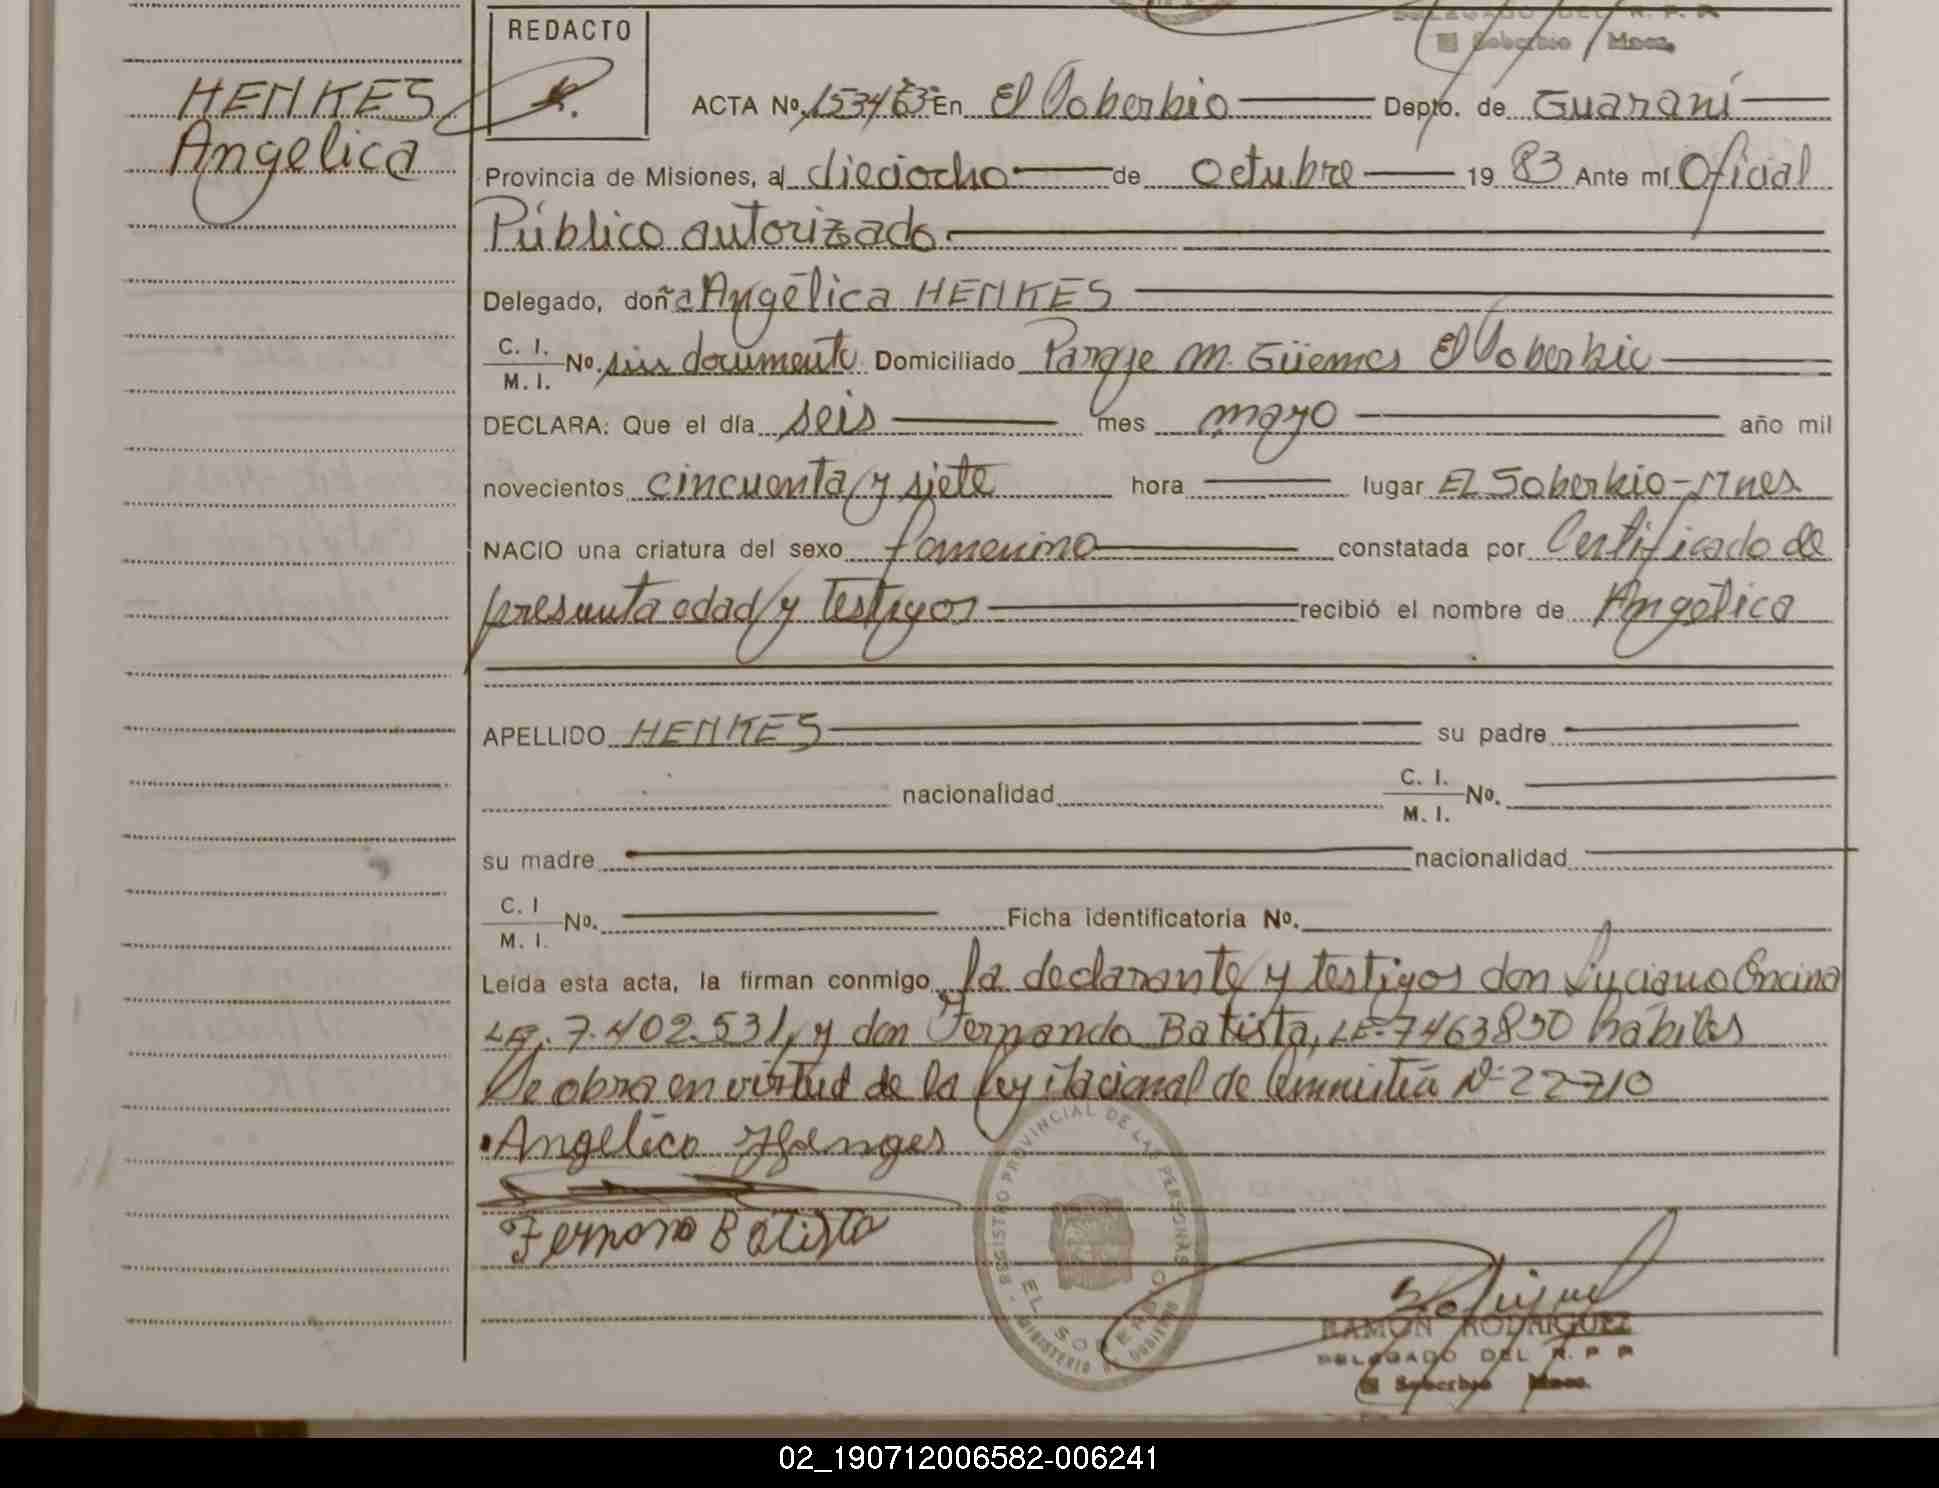 DELEGADO DEL R. P. P.
El Soberbio Mnes.
REDACTO
HENKES
Angelica
ACTA Nº 153463 En El Soberbio Depto. de Guaraní
Provincia de Misiones, al dieciocho de octubre 1983 Ante mí Oficial
Público autorizado
Delegado, doña Angélica HENKES
C. I.
M. I. Nº. sin documento Domiciliado Paraje M. Güemes El Soberbio
DECLARA: Que el día seis mes mayo año mil
novecientos cincuenta y siete hora lugar EL Soberbio-Mnes
NACIO una criatura del sexo femenino constatada por Certificado de
presunta edad y testigos recibió el nombre de Angélica
APELLIDO HENKES su padre
nacionalidad C. I.
M. I. Nº.
su madre nacionalidad
C. I
M. I. Nº. Ficha identificatoria Nº.
Leída esta acta, la firman conmigo la declarante y testigos don Luciano Encina
LE. 7.402.531, y don Fernando Batista, LE-7463850 hábiles
De obra en virtud de la ley Nacional de Amnistía Nº 22710
Angelica Henges
Fernando Batista
REGISTRO PROVINCIAL DE LAS PERSONAS
EL SOBERBIO
MINISTERIO DE GOBIERNO
RAMON RODRIGUEZ
DELEGADO DEL R. P. P.
El Soberbio Mnes.
02_190712006582-006241